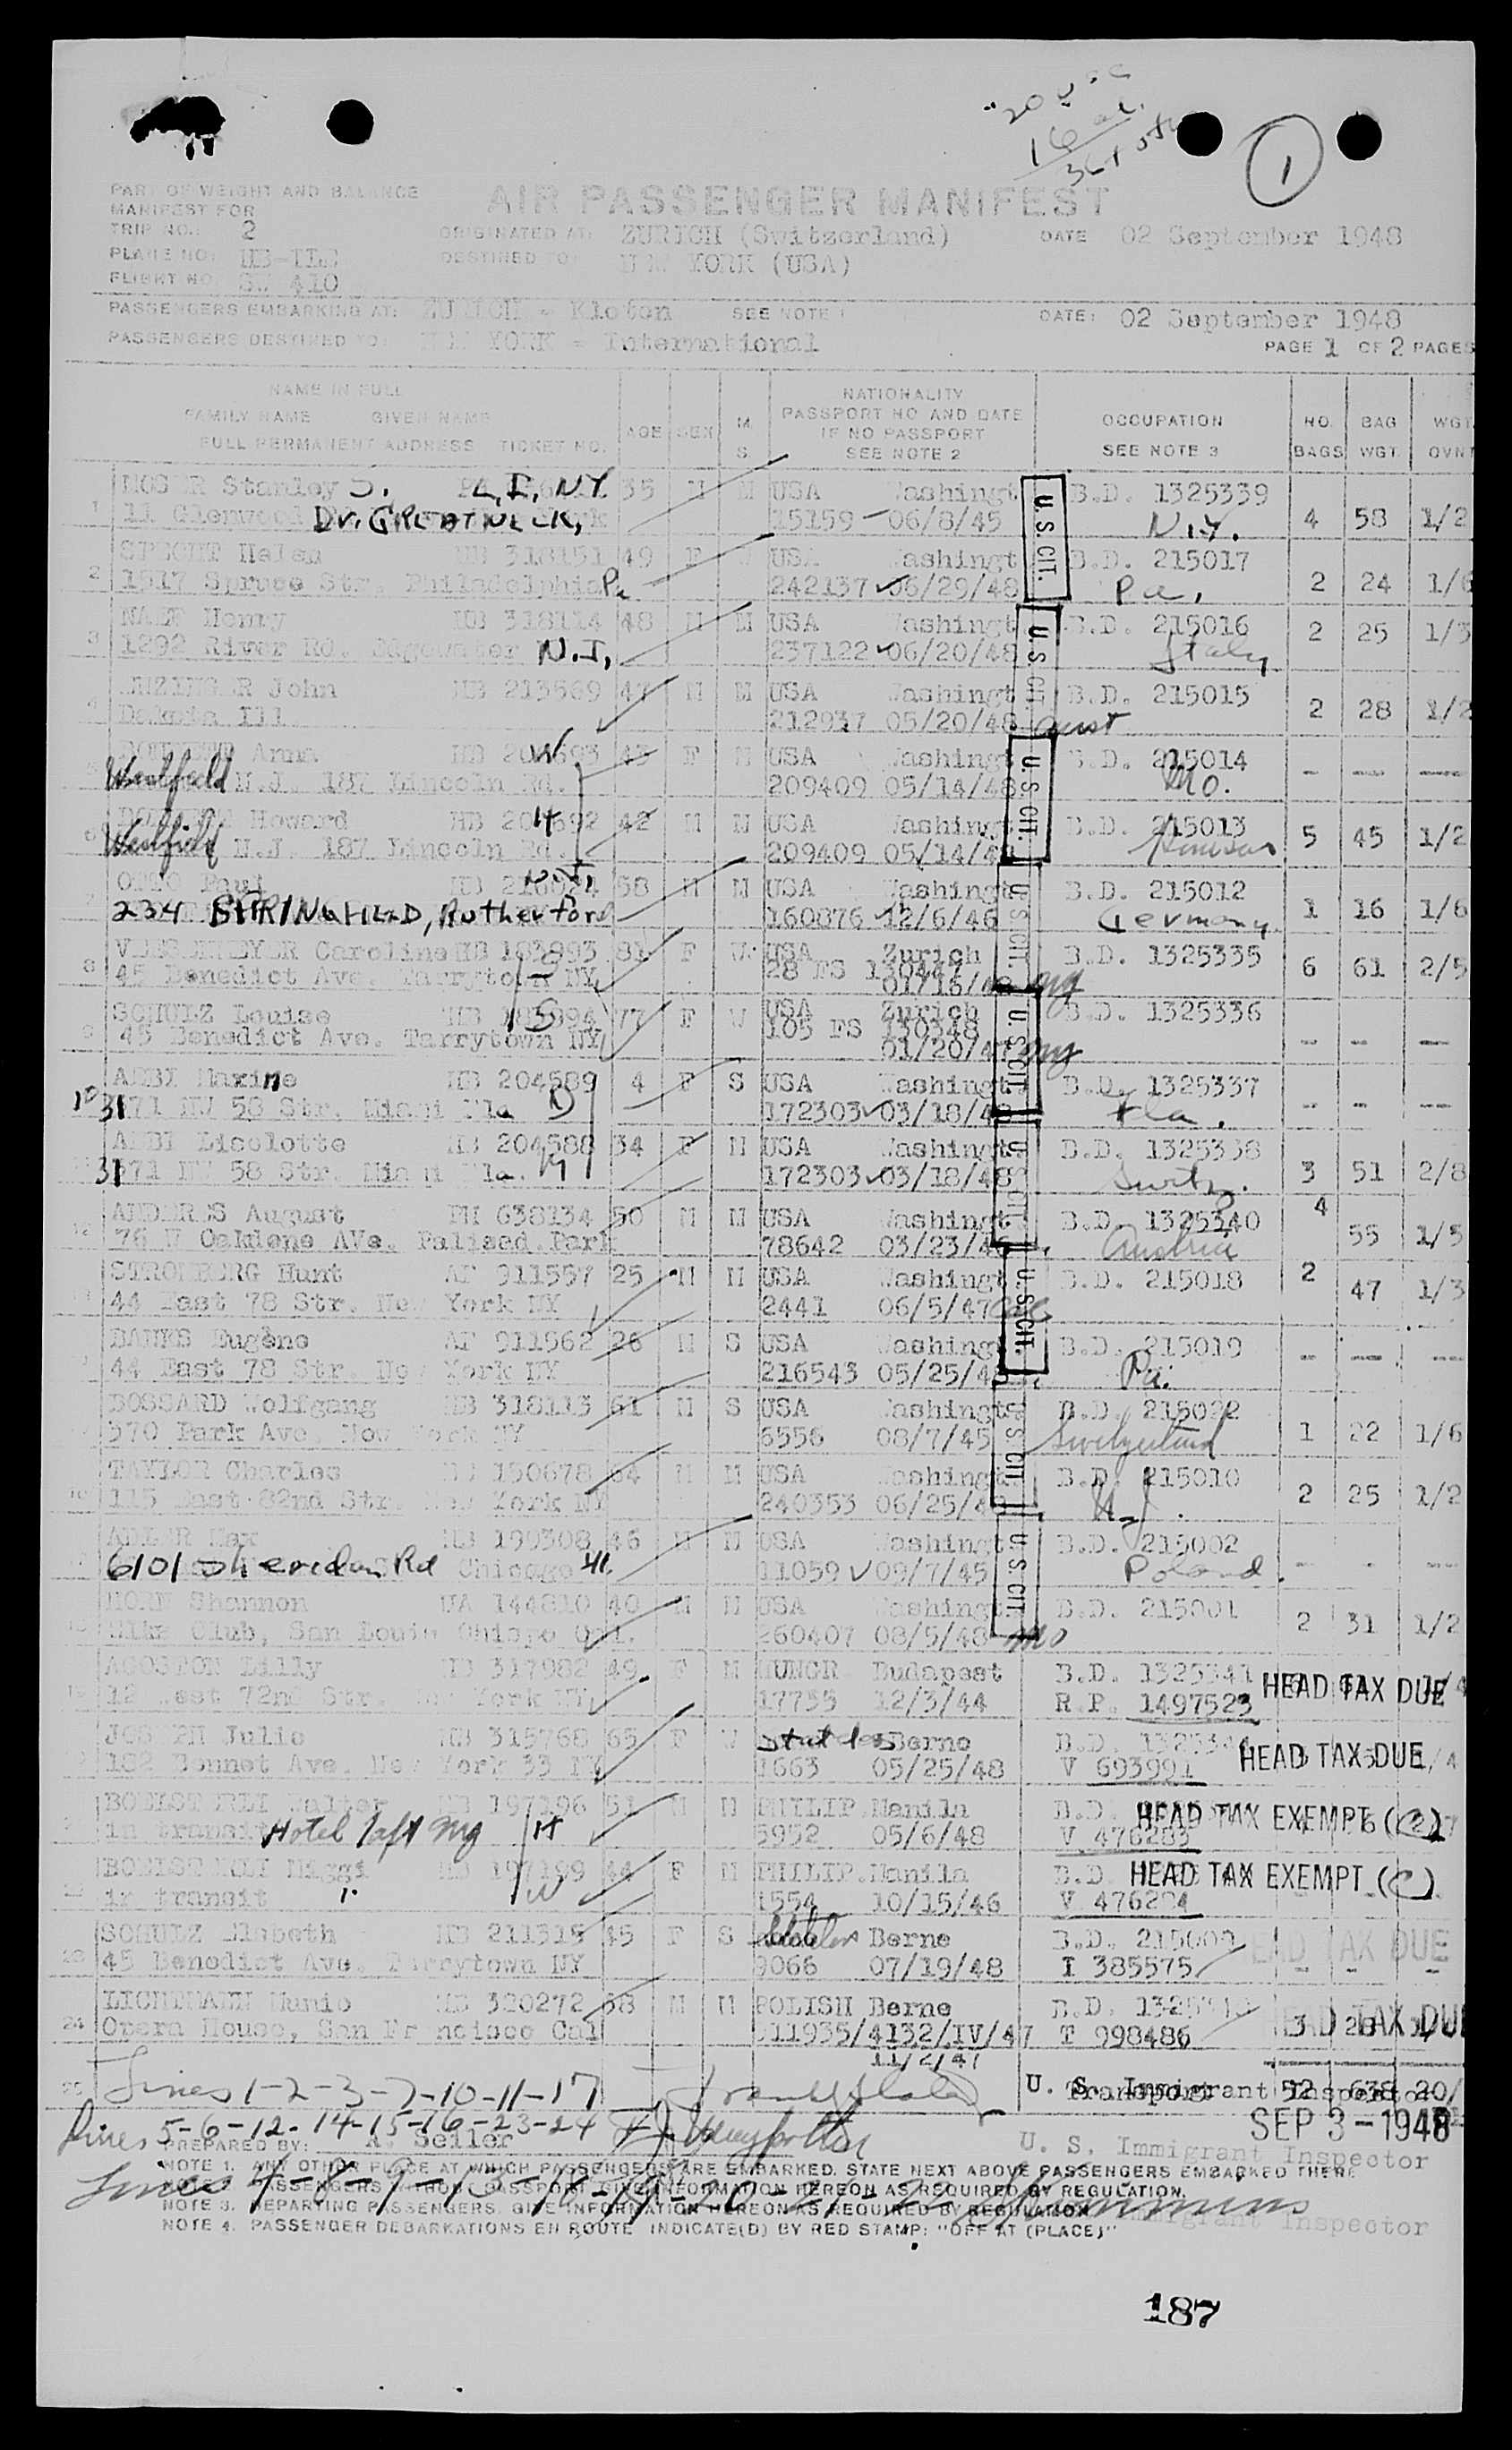 20
16 al.
1
PART OF WEIGHT AND BALANCE
MANIFEST FOR
AIR PASSENGER MANIFEST
TRIP NO.: 2
ORIGINATED AT: ZURICH (Switzerland)
DATE 02 September 1948
PLANE NO:
DESTINED TO: NEW YORK (USA)
FLIGHT NO. SR 410
PASSENGERS EMBARKING AT: ZURICH - Kloten SEE NOTE 1
DATE: 02 September 1948
PASSENGERS DESTINED TO: NEW YORK - International
PAGE 1 OF 2 PAGES
NAME IN FULL
FAMILY NAME GIVEN NAME
FULL PERMANENT ADDRESS TICKET NO.
AGE SEX M. S.
NATIONALITY
PASSPORT NO AND DATE
IF NO PASSPORT
SEE NOTE 2
OCCUPATION
SEE NOTE 3
NO. BAGS
BAG WGT.
WGT. OVNT
1 MOSER Stanley S. L.I., NY. 35 M M USA Washingt B.D. 1325339
11 Glenwood Dr. GREAT NECK, 15159 - 06/8/45 N.Y. 4 58 1/2
SPECHT Helen HB 318151 49 F USA Washingt B.D. 215017
2 1517 Spruce Str. Philadelphia Pa 242137 06/29/48 Pa. 2 24 1/6
NAEF Henry HB 318114 48 M M USA Washingt B.D. 215016
3 1292 River Rd. Edgewater N.J. 237122 06/20/48 Italy 2 25 1/3
John HB 213569 47 M M USA Washingt B.D. 215015
4 Dakota Ill 212937 05/20/48 Aust 2 28 1/2
Anna W. 43 F M USA Washingt B.D. 215014
Westfield N.J. 187 Lincoln Rd. 209409 05/14/48 Mo. - - -
Howard H 42 M M USA Washingt B.D. 215013
6 Westfield N.J. 187 Lincoln Rd. 209409 05/14/48 Kansas 5 45 1/2
OTTO Paul N.J. 58 M M USA Washingt B.D. 215012
234 SPRINGFIELD, Rutherford 160876 12/6/46 Germany 1 16 1/6
Caroline HB 183893 81 F W USA Zurich B.D. 1325335
8 45 Benedict Ave. Tarrytown NY. 28 FS 130447 01/16/48 ny 6 61 2/5
SCHULZ Louise HB 183894 77 F W USA Zurich B.D. 1325336
9 45 Benedict Ave. Tarrytown NY 105 FS 130348 01/20/47 ny - - -
AEBI Maxine HB 204589 4 F S USA Washingt B.D. 1325337
10 3171 NW 58 Str. Miami Fla D 172303 03/18/48 Fla. - - -
AEBI Liselotte HB 204588 34 F M USA Washingt B.D. 1325338
3171 NW 58 Str. Miami Fla. M 172303 03/18/48 Switz. 3 51 2/8
ANDERES August 638134 50 M M USA Washingt B.D. 1325340 4
12 76 W Oakdene AVe. Palisad.Park 78642 03/23/46 Austria 55 1/5
STROMBERG Hunt AF 911557 25 M M USA Washingt B.D. 215018 2
44 East 78 Str. New York NY 2441 06/5/47 Cal 47 1/3
BANKS Eugène AF 911562 26 M S USA Washingt B.D. 215019
44 East 78 Str. New York NY 216543 05/25/48 Pa. - - -
BOSSARD Wolfgang HB 318113 61 M S USA Washingt B.D. 215022
570 Park Ave. New York NY 6556 08/7/45 Switzerland 1 22 1/6
TAYLOR Charles HB 150678 64 M M USA Washingt B.D. 215010
16 115 East 82nd Str. New York NY 240353 06/25/48 N.J. 2 25 1/2
ADLER Max HB 190308 46 M M USA Washingt B.D. 215002
6101 Sheridan Rd Chicago Ill. 11059 09/7/45 Poland. - - -
Shannon UA 144810 40 M M USA Washingt B.D. 215001
Elks Club, San Louis Obispo Cal. 260407 08/5/48 Mo 2 31 1/2
AGOSTON Lilly HB 317082 49 F M HUNGR Budapest B.D. 1325341
12 West 72nd Str. New York NY. 17735 12/3/44 R.P. 1497523 HEAD TAX DUE
JOSEPH Julie HB 315768 65 F W stateless Berne B.D.
182 Bennet Ave. New York 33 NY 1663 05/25/48 V 693991 HEAD TAX DUE
Walter HB 197196 51 M M PHILIP. Manila B.D.
in transit Hotel Taft ny H 5952 05/6/48 V 476283 HEAD TAX EXEMPT (C)
Miggi HB 197199 44 F M PHILIP. Manila B.D.
22 in transit W 1554 10/15/46 V 476284 HEAD TAX EXEMPT (C)
SCHULZ Lisbeth HB 211315 45 F S Stateless Berne B.D. 215009
23 45 Benedict Ave. Tarrytown NY 9066 07/19/48 I 385575 HEAD TAX DUE
HB 320272 38 M M POLISH Berne B.D.
24 Opera House, San Francisco Cal 11935/4132/IV/47 T 998486 3 28 HEAD TAX DUE
11/2/47
25 Lines 1-2-3-7-10-11-17
U. S. Immigrant Inspector
Transport 52 638 20/
Lines 5-6-12-14-15-16-23-24
SEP 3-1948
PREPARED BY: A. Seiler
U. S. Immigrant Inspector
NOTE 1. ANY OTHER PLACE AT WHICH PASSENGERS ARE EMBARKED. STATE NEXT ABOVE PASSENGERS EMBARKED THERE
Lines 4-8-9-13-18-19-20-21-22
NOTE 2. PASSENGERS WITHOUT PASSPORT GIVE INFORMATION HEREON AS REQUIRED BY REGULATION.
NOTE 3. DEPARTING PASSENGERS. GIVE INFORMATION HEREON AS REQUIRED BY REGULATION
U. S. Immigrant Inspector
NOTE 4. PASSENGER DEBARKATIONS EN ROUTE INDICATE(D) BY RED STAMP: "OFF AT (PLACE)"
187
U. S. CIT.
U. S. CIT.
U. S. CIT.
U. S. CIT.
U. S. CIT.
U. S. CIT.
U. S. CIT.
U. S. CIT.
U. S. CIT.